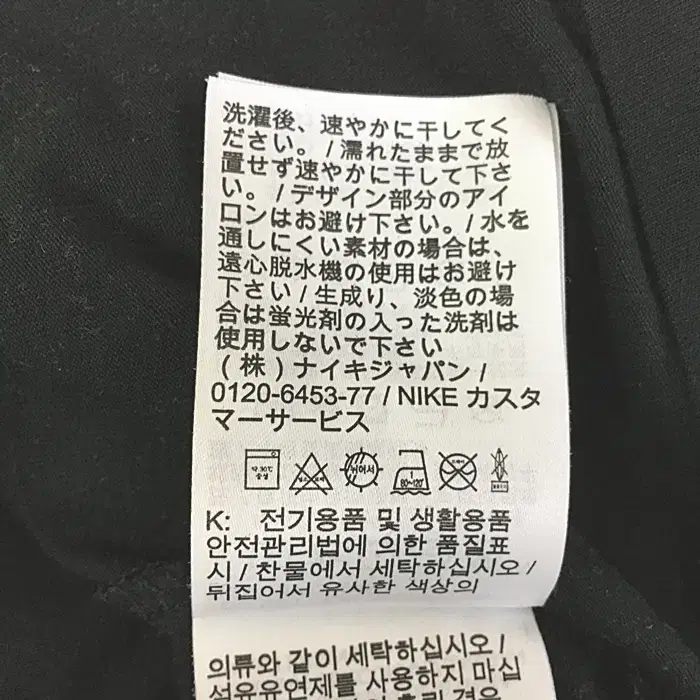 洗濯後、速やかに干してく
ださい。/ 濡れたままで放
置せず速やかに干して下さ
い。/ デザイン部分のアイ
ロンはお避け下さい。/ 水を
通しにくい素材の場合は、
遠心脱水機の使用はお避け
下さい / 生成り、淡色の場
合は蛍光剤の入った洗剤は
使用しないで下さい
(株) ナイキジャパン /
0120-6453-77 / NIKE カスタ
マーサービス
약 30℃
중성
뉘어서
1
80~120℃
K: 전기용품 및 생활용품
안전관리법에 의한 품질표
시 / 찬물에서 세탁하십시오 /
뒤집어서 유사한 색상의
의류와 같이 세탁하십시오 /
섬유유연제를 사용하지 마십